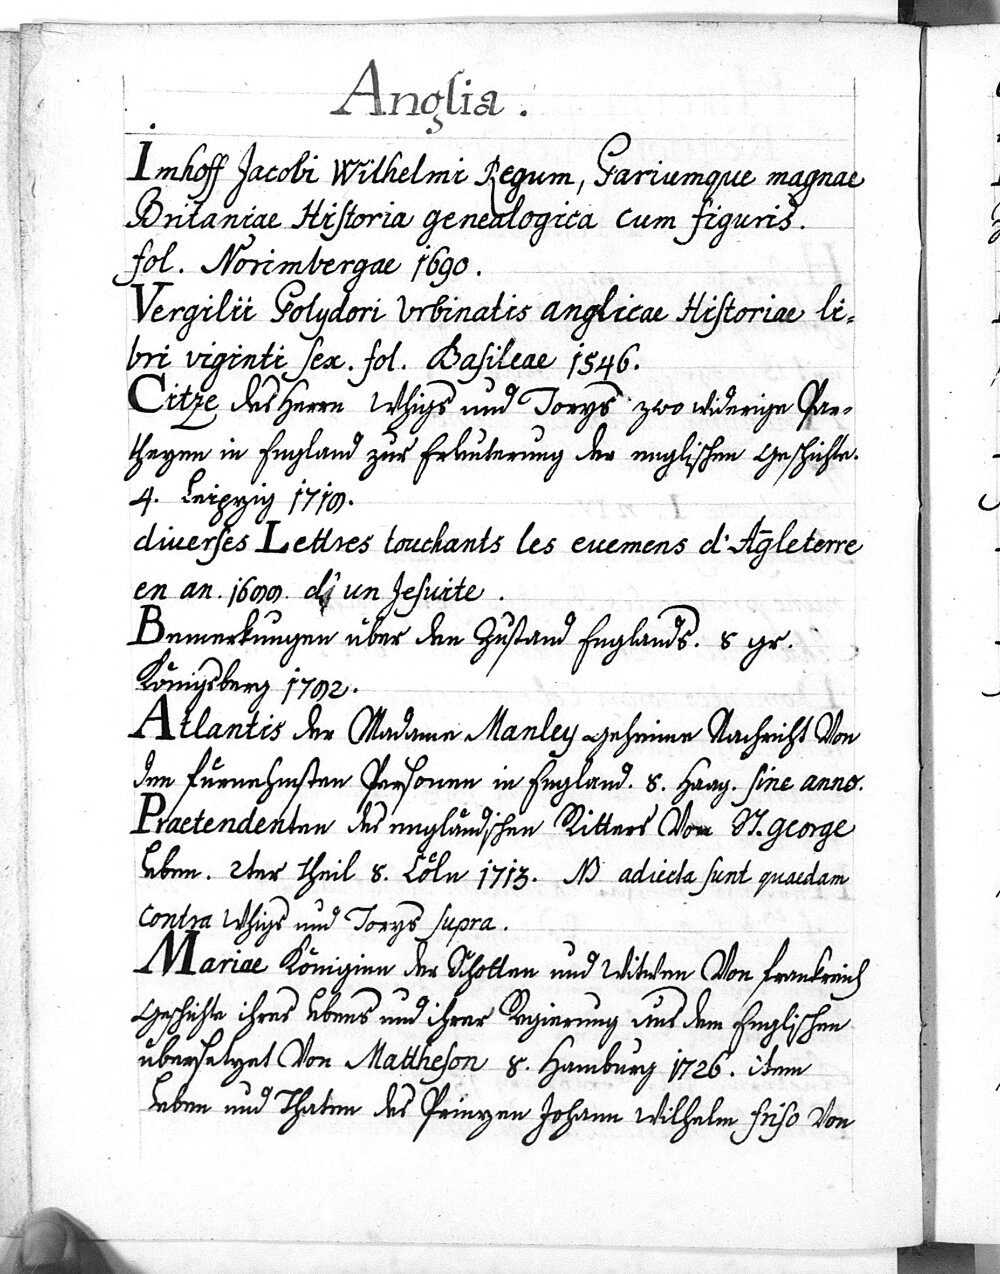 Anglia.
Imhoff Jacobi Wilhelmi Regum, Pariumque magnae
Britaniae Historia genealogica cum figuris.
fol. Norimbergae 1690.
Vergilii Polydori Urbinatis anglicae Historiae li-
bri viginti sex. fol. Basileae 1546.
Citze des Herrn Whigs und Torys zwo widerige Par-
theyen in England zur Erleuterung der englischen Geschichte.
4. Leipzig 1719.
diverses Lettres touchants les evemens d'Agleterre
en an. 1699. d'un Jesuite.
Bemerkungen über den Zustand Englands. 8 gr.
Königsberg 1792.
Atlantis der Madame Manley geheime Nachricht von
den fürnehmsten Personen in England. 8. Haag. sine anno.
Praetendenten des engländischen Ritters von St. george
Leben. 2ter Theil 8. Cöln 1713. NB adiecta sunt quaedam
contra Whigs und Torys supra.
Mariae Königinn der Schotten und Witwen von Frankreich
Geschichte ihres Lebens und ihrer Regierung aus dem Englischen
übersetzet von Mattheson 8. Hamburg 1726. item
Leben und Thaten des Prinzen Johann Wilhelm friso von